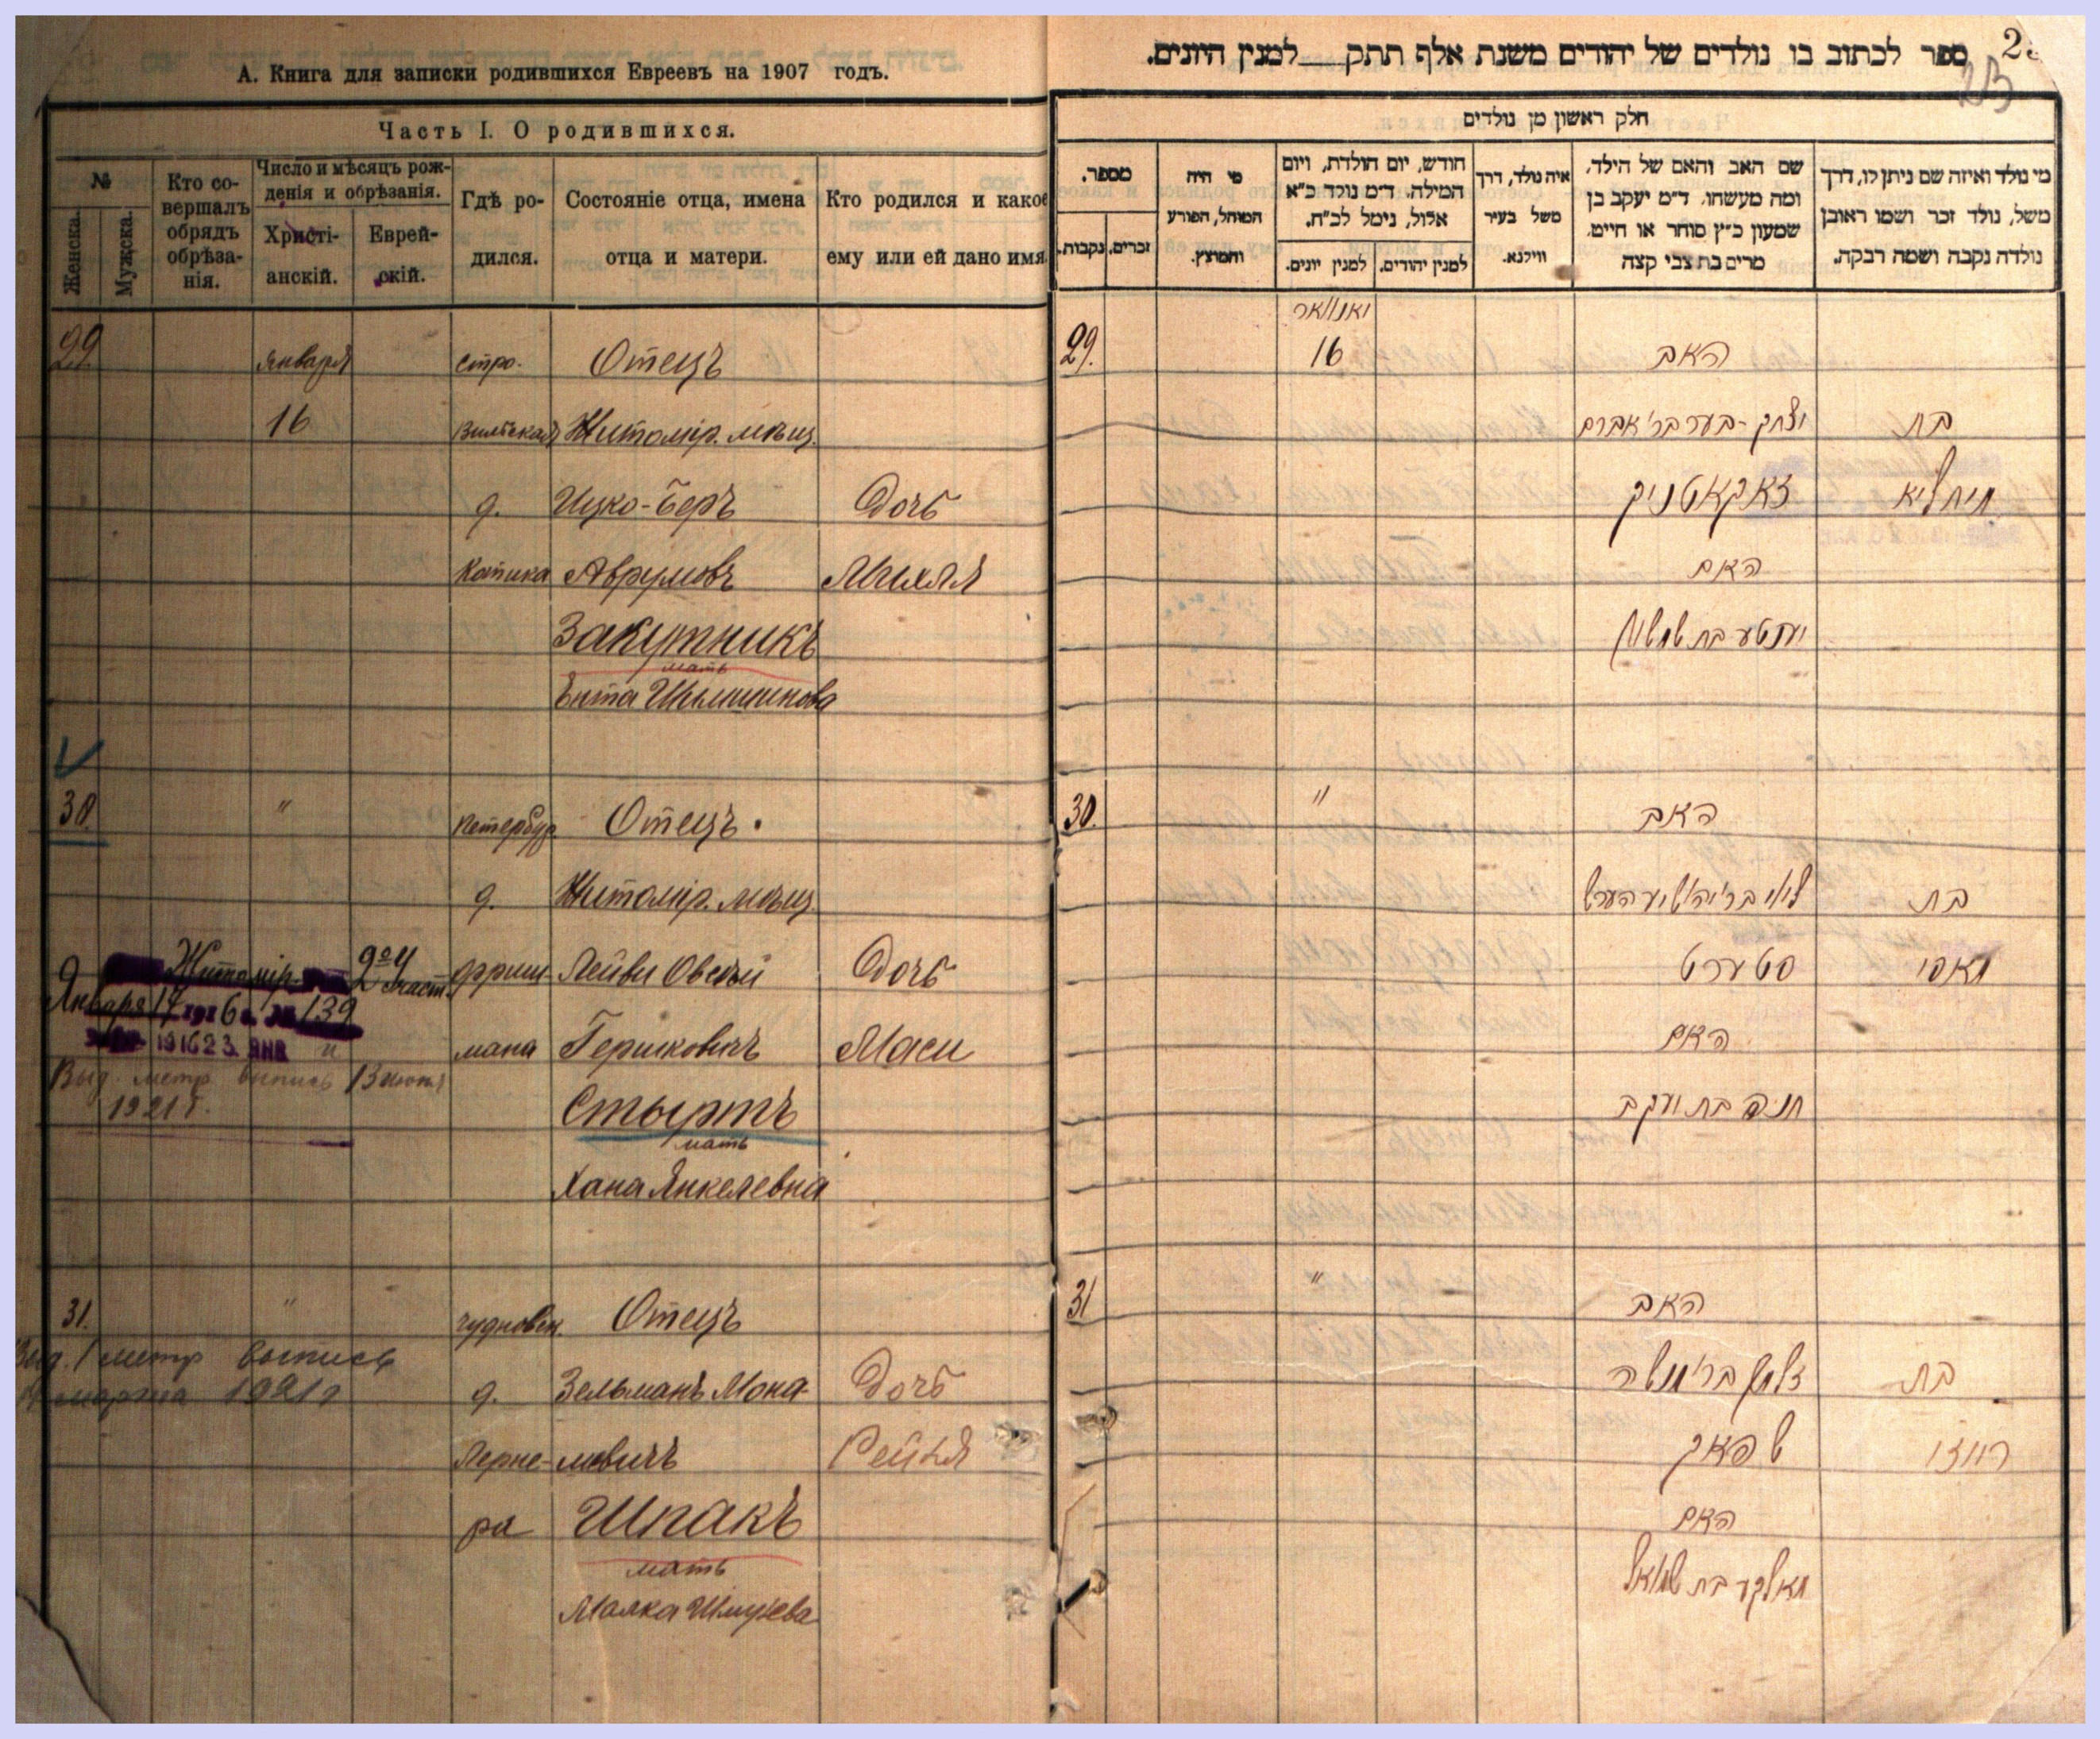 А. Книга для записки родившихся Евреевъ на 1907 годъ.
Часть I. О родившихся.
№
Женска.
Мужска.
Кто совершалъ обрядъ обрѣзанія.
Число и мѣсяцъ рожденія и обрѣзанія.
Христіанскій.
Еврейскій.
Гдѣ родился.
Состояніе отца, имена отца и матери.
Кто родился и какое ему или ей дано имя
29
Января
стро.
Отецъ
16
Вильская
Житомір. мѣщ.
д.
Ицко-Беръ
Дочь
Котика
Аврумовъ
Михля
Закутникъ
мать
Ента
30.
"
Петербур
Отецъ.
д.
Житомір. мѣщ.
Житомір.
2ой Участ.
фриш
Лейви Овсей
Дочь
Января 17 1916 г. № 139
1916 23 ЯНВ
мана
Гершковичъ
Маси
Выд. метр выпись 13 июня
1921 г.
Стыртъ
мать
Хана Янкелевна
31.
"
чудновск.
Отецъ
Выд. 1 метр выпись
марта 1921 г
д.
Зельманъ Мона-
Дочь
Лерне-
ловичъ
Рейзя
ра
Шпакъ
мать
Малка Шмулева
2
23
ספר לכתוב בו נולדים של יהודים משנת אלף תתק למנין היונים.
חלק ראשון מן נולדים
מספר.
נקבות.
זכרים.
מי היה
המוהל, הפורע
והמוצץ.
חודש, יום הולדת, ויום
המילה. ד״מ נולד כ״א
אלול, נימל לכ״ח.
למנין יונים.
למנין יהודים.
איה נולד, דרך
משל בעיר
ווילנא.
שם האב והאם של הילד,
ומה מעשהו. ד״מ יעקב בן
שמעון כ״ץ סוחר או חייט.
מרים בת צבי קצה
מי נולד ואיזה שם ניתן לו, דרך
משל, נולד זכר ושמו ראובן
נולדה נקבה ושמה רבקה.
יאנוואר
29.
16
האב
יצחק-בער בר׳ אברם
בת
זאקאטניק
מיחליא
האם
יענטע בת שמשון
30.
"
האב
בת
סטערט
מאסי
האם
חנה בת יעקב
31
"
האב
זלמן בר׳ מנשה
בת
שפאק
רייזי
האם
מאלקע בת שמואל